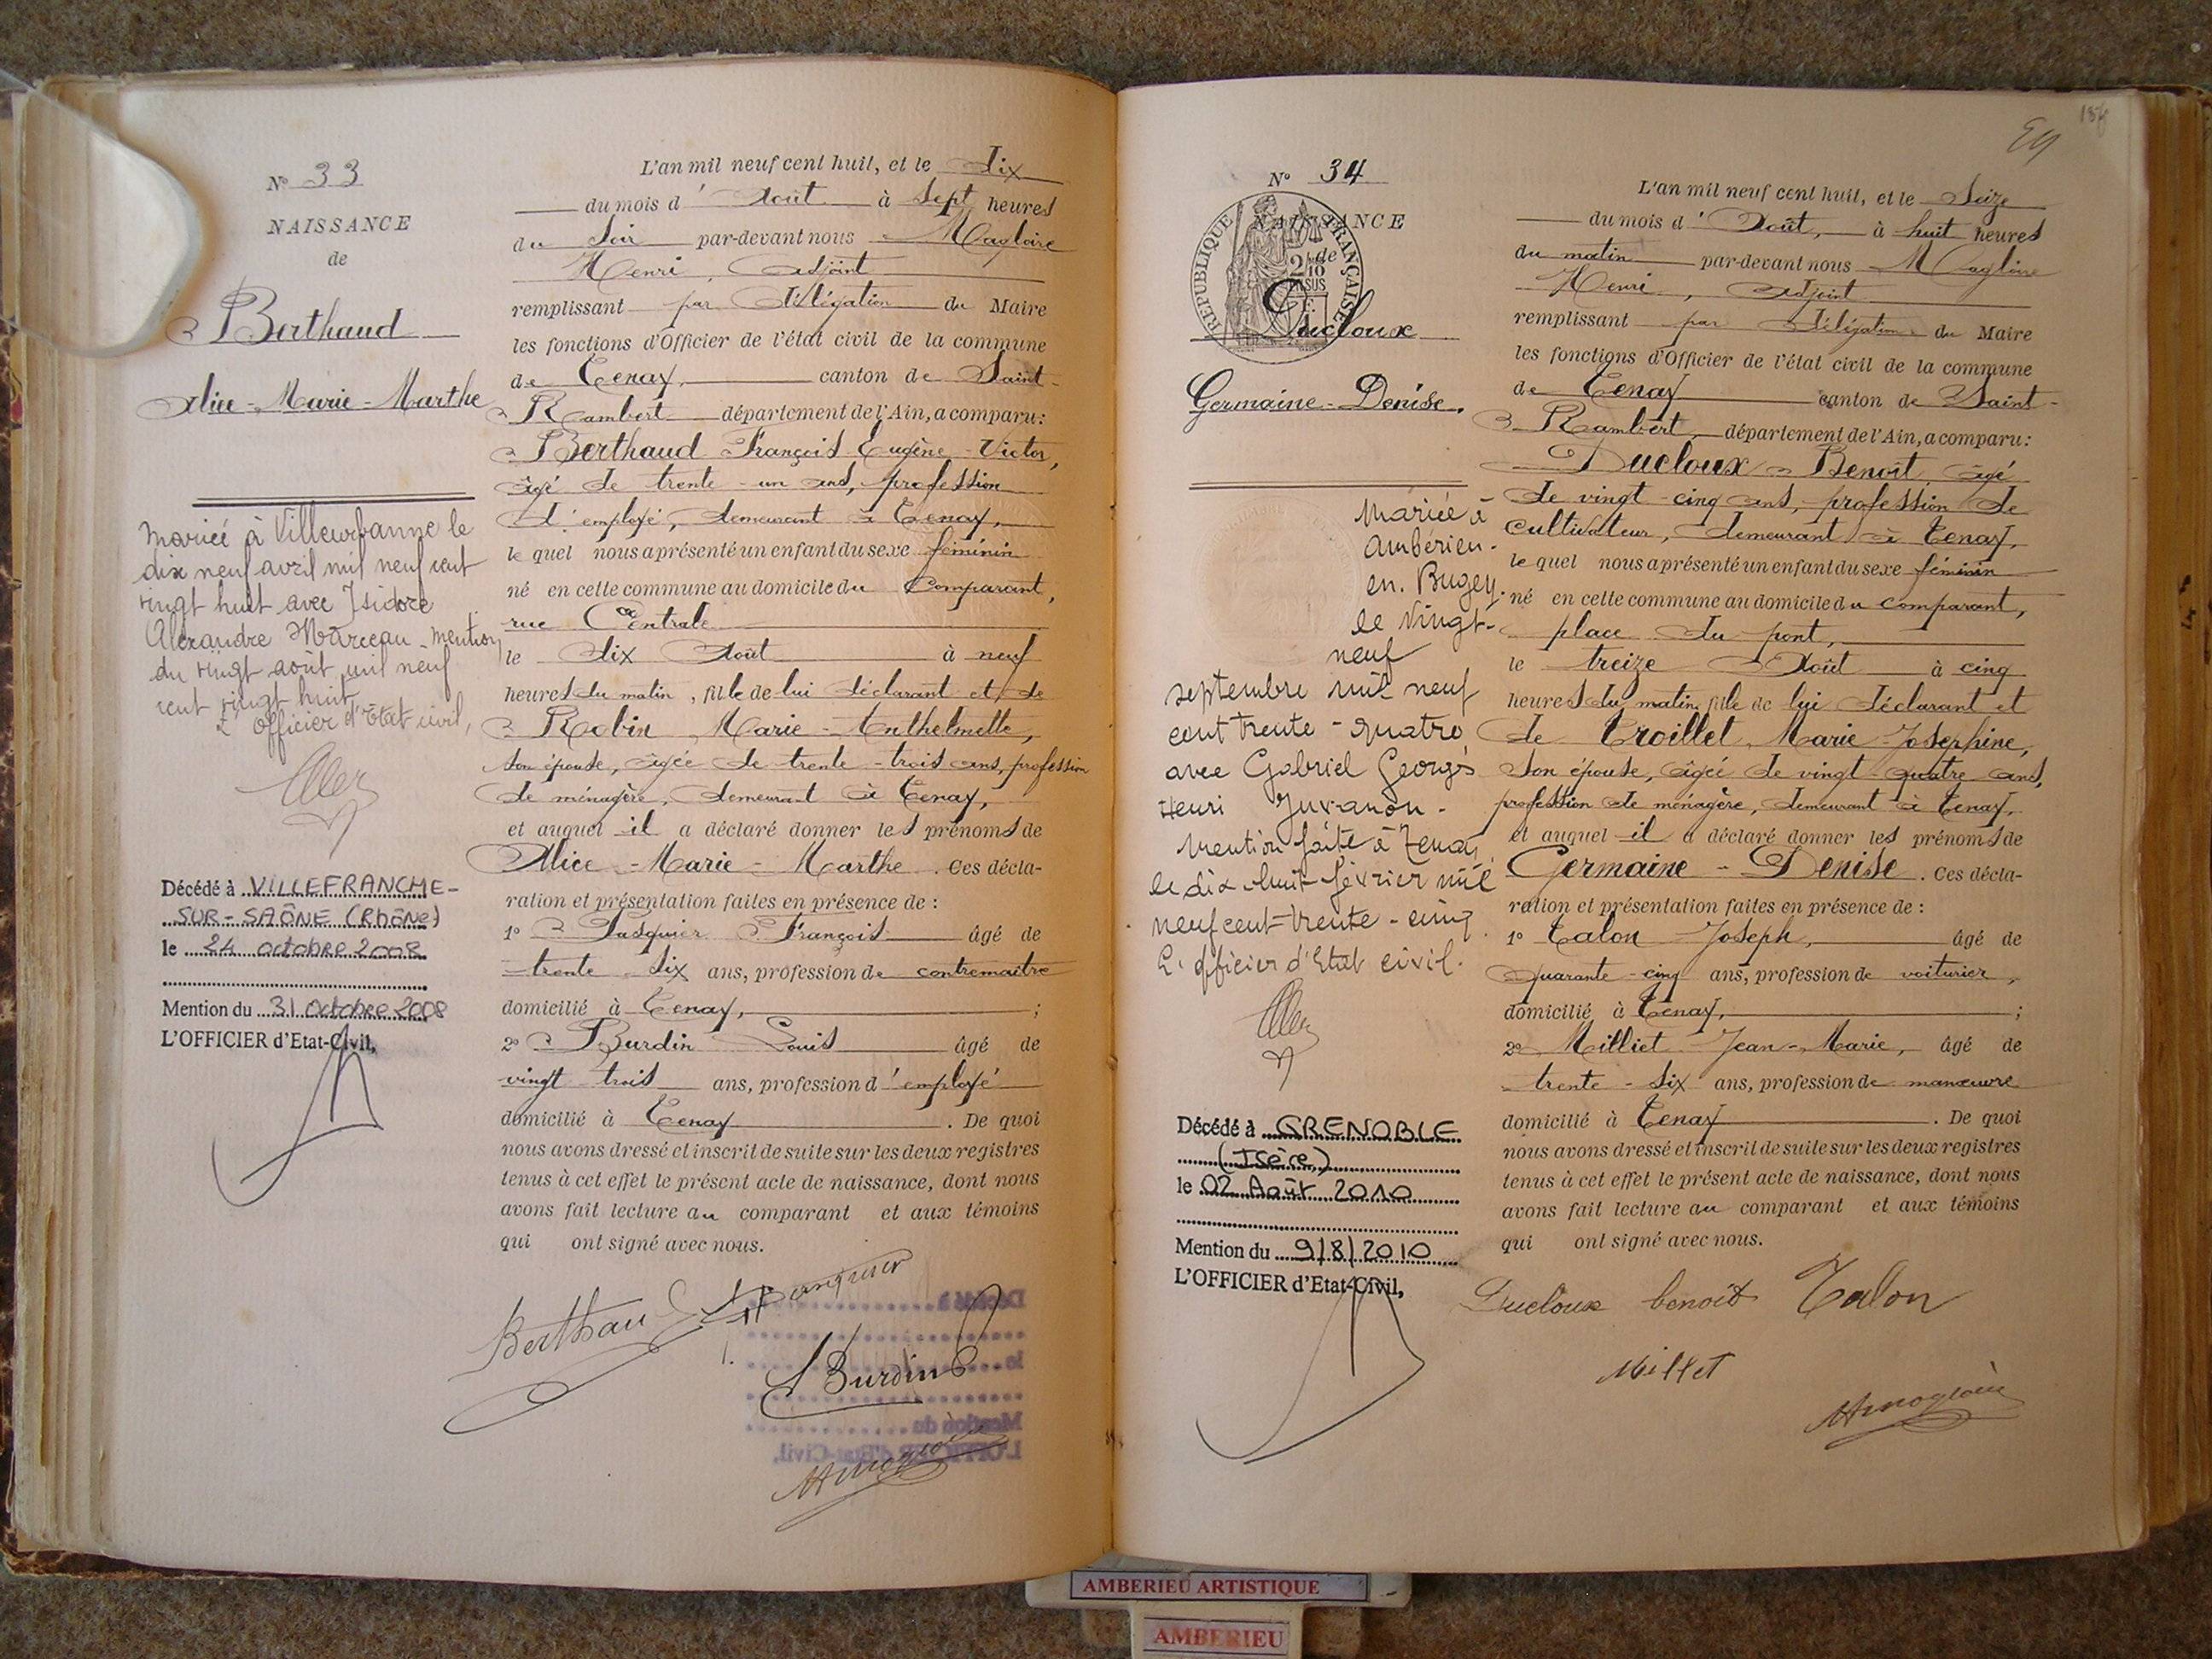 N° 33
NAISSANCE
de
Berthaud
Alice-Marie-Marthe
mariée à Villeurbanne le
dix neuf avril mil neuf cent
vingt huit avec Isidore
Alexandre Marceau - mention
du vingt août mil neuf
cent vingt huit
L'officier d'Etat civil,
Décédé à VILLEFRANCHE-
SUR-SAÔNE (Rhône)
le 24 octobre 2008
Mention du 31 octobre 2008
L'OFFICIER d'Etat-Civil,
L'an mil neuf cent huit, et le dix
du mois d'Août à sept heures
du soir par-devant nous Magloire
Henri, adjoint
remplissant par délégation du Maire
les fonctions d'Officier de l'état civil de la commune
de Tenay, canton de Saint-
Rambert département de l'Ain, a comparu:
Berthaud François Eugène-Victor,
âgé de trente-un ans, profession
d'employé, demeurant à Tenay,
le quel nous a présenté un enfant du sexe féminin
né en cette commune au domicile du Comparant,
rue Centrale
le dix Août à neuf
heures du matin, fille de lui déclarant et de
Robin Marie-Anthelmette,
son épouse, âgée de trente-trois ans, profession
de ménagère, demeurant à Tenay,
et auquel il a déclaré donner les prénoms de
Alice-Marie-Marthe. Ces décla-
ration et présentation failes en présence de :
1° Pasquier François âgé de
trente-six ans, profession de contremaitre
domicilié à Tenay, ;
2° Burdin Louis âgé de
vingt trois ans, profession d'employé
domicilié à Tenay. De quoi
nous avons dressé et inscrit de suite sur les deux registres
tenus à cet effet le présent acte de naissance, dont nous
avons fait lecture au comparant et aux témoins
qui ont signé avec nous.
Berthaud Pasquier
L Burdin
HMagloire
Décédé à
le
Mention du
L'OFFICIER d'Etat-Civil,
59
N° 34
NAISSANCE
de
REPUBLIQUE FRANÇAISE
2/10 EN SUS
Ducloux
Germaine-Denise.
Mariée à
Ambérieu-
en-Bugey
le vingt-
neuf
septembre mil neuf
cent trente-quatre
avec Gabriel Georges
Henri Juvanon-
Mention faite à Tenay
le dix-huit février mil
neuf cent-trente-cinq
L'officier d'Etat civil.
Décédé à GRENOBLE
(Isère)
le 02 Août 2010
Mention du 9/8/2010
L'OFFICIER d'Etat-Civil,
L'an mil neuf cent huit, et le Seize
du mois d'Août, à huit heures
du matin par-devant nous Magloire
Henri, adjoint
remplissant par délégation du Maire
les fonctions d'Officier de l'état civil de la commune
de Tenay canton de Saint-
Rambert, département de l'Ain, a comparu:
Ducloux Benoit, âgé
de vingt-cinq ans, profession de
cultivateur, demeurant à Tenay,
le quel nous a présenté un enfant du sexe féminin
né en cette commune au domicile du comparant,
place du pont,
le treize Août à cinq
heures du matin, fille de lui déclarant et
de Troillet Marie-Josephine,
son épouse, âgée de vingt-quatre ans,
profession de ménagère, demeurant à Tenay,
et auquel il a déclaré donner les prénoms de
Germaine-Denise. Ces décla-
ration et présentation failes en présence de :
1° Talon Joseph, âgé de
quarante-cinq ans, profession de voiturier,
domicilié à Tenay, ;
2° Milliet Jean-Marie, âgé de
trente-six ans, profession de manœuvre
domicilié à Tenay. De quoi
nous avons dressé et inscrit de suite sur les deux registres
tenus à cet effet le présent acte de naissance, dont nous
avons fait lecture au comparant et aux témoins
qui ont signé avec nous.
Ducloux benoit Talon
Millet
HMagloire
AMBERIEU ARTISTIQUE
AMBERIEU